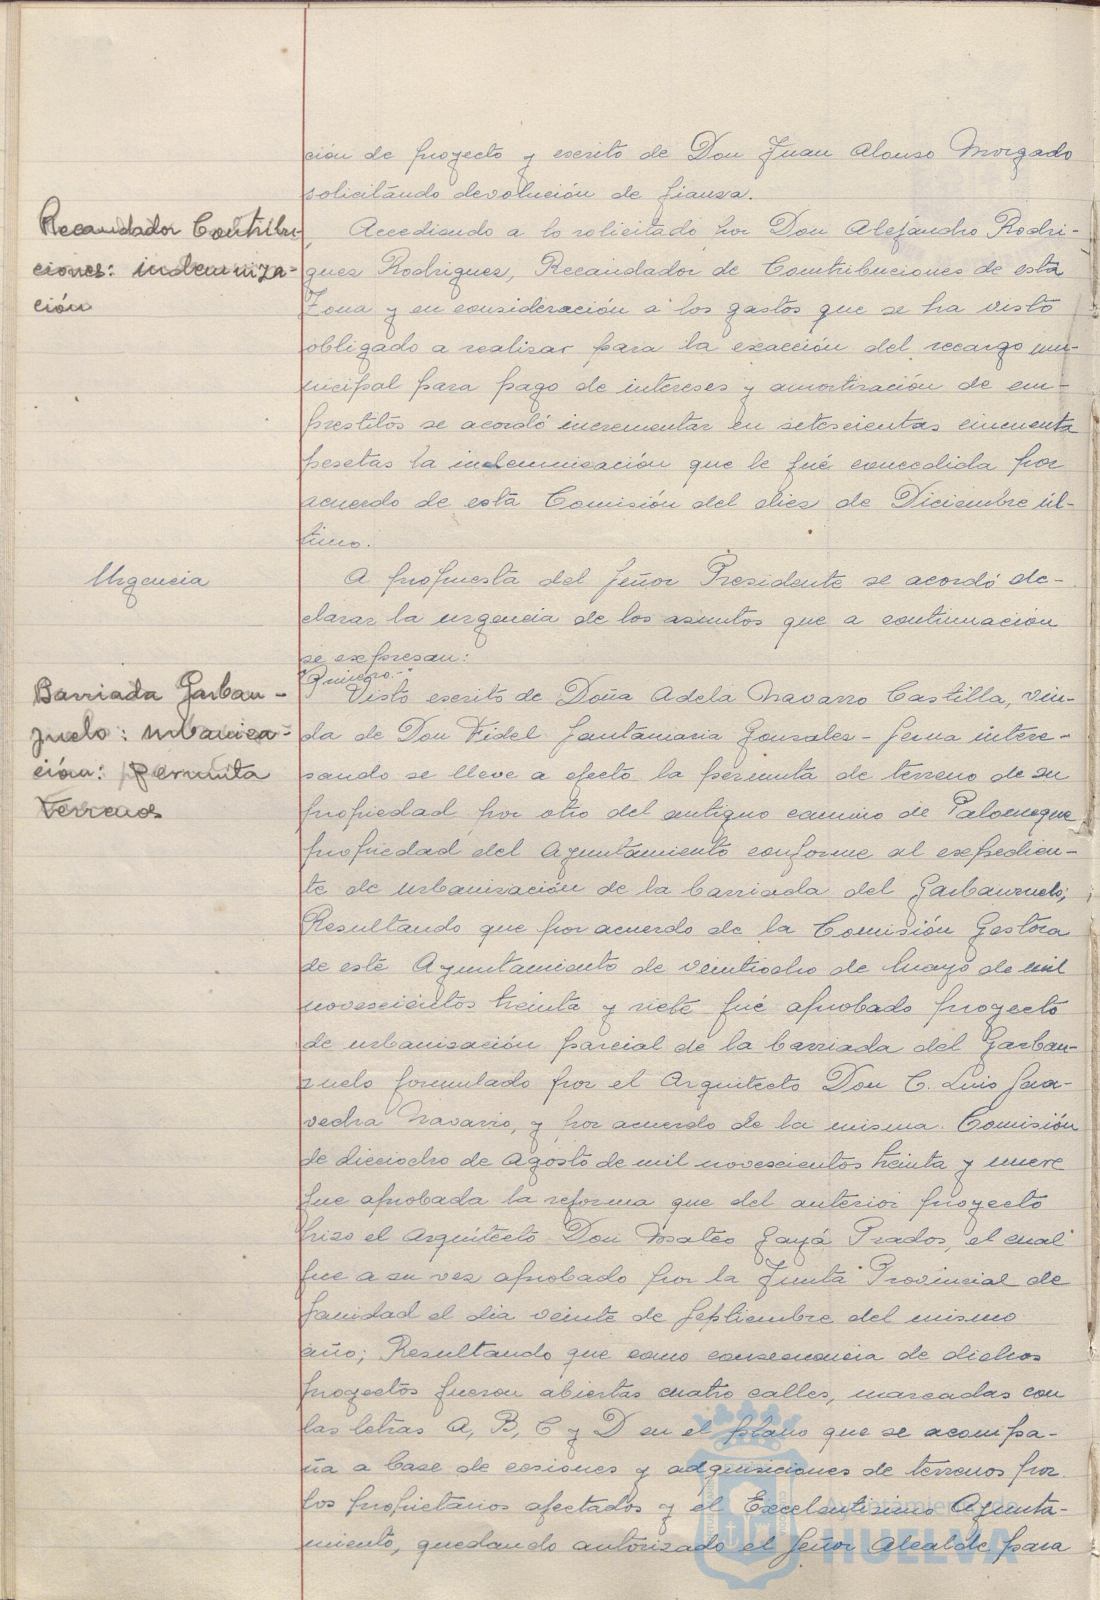 ción de proyecto y escrito de Don Juan Alonso Morgado
solicitándo devolución de fianza.
Recaudador Contribu-
ciones: indemniza-
ción
Accediendo a lo solicitado por Don Alejándro Rodri-
guez Rodriguez, Recaudador de Contribuciones de esta
Zona y en consideración a los gastos que se ha visto
obligado a realizar para la exacción del recargo mu-
nicipal para pago de intereses y amortización de em-
prestitos se acordó incrementar en setescientas cincuenta
pesetas la indemnización que le fué concedida por
acuerdo de esta Comisión del diez de Diciembre úl-
timo.
Urgencia
A propuesta del Señor Presidente se acordó de-
clarar la urgencia de los asuntos que a continuación
se expresan:
Barriada Garban-
zuelo: urbaniza-
ción: permuta
terrenos
"Primero.-"
Visto escrito de Doña Adela Navarro Castilla, viu-
da de Don Fidel Santamaria Gonzalez-Serna intere-
sando se lleve a efecto la permuta de terreno de su
propiedad por otro del antiguo camino de Palomeque
propiedad del Ayuntamiento conforme al expedien-
te de urbanización de la barriada del Garbanzuelo;
Resultando que por acuerdo de la Comisión Gestora
de este Ayuntamiento de veintiocho de Mayo de mil
novescientos treinta y siete fué aprobado proyecto
de urbanización parcial de la barriada del Garban-
zuelo formulado por el Arquitecto Don C. Luis Saa-
vedra Navarro, y por acuerdo de la misma Comisión
de dieciocho de Agosto de mil novescientos treinta y nueve
fue aprobada la reforma que del anterior proyecto
hizo el Arquitecto Don Mateo Gayá Prados, el cual
fue a su vez aprobado por la Junta Provincial de
Sanidad el dia veinte de Septiembre del mismo
año; Resultando que como consecuencia de dichos
proyectos fueron abiertas cuatro calles, marcadas con
las letras A, B, C y D en el plano que se acompa-
ña a base de cesiones y adquisiciones de terrenos por
los propietarios afectados y el Excelentisimo Ayunta-
miento, quedando autorizado el Señor Alcalde para
Ayuntamiento de
HUELVA